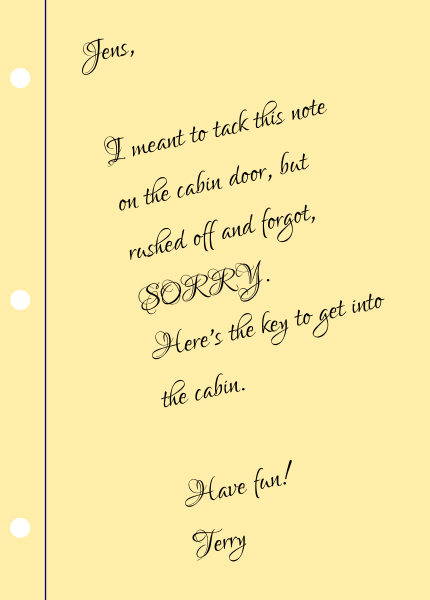 Jens,
I meant to tack this note
on the cabin door, but
rushed off and forgot,
SORRY.
Here's the key to get into
the cabin.
Have fun!
Terry